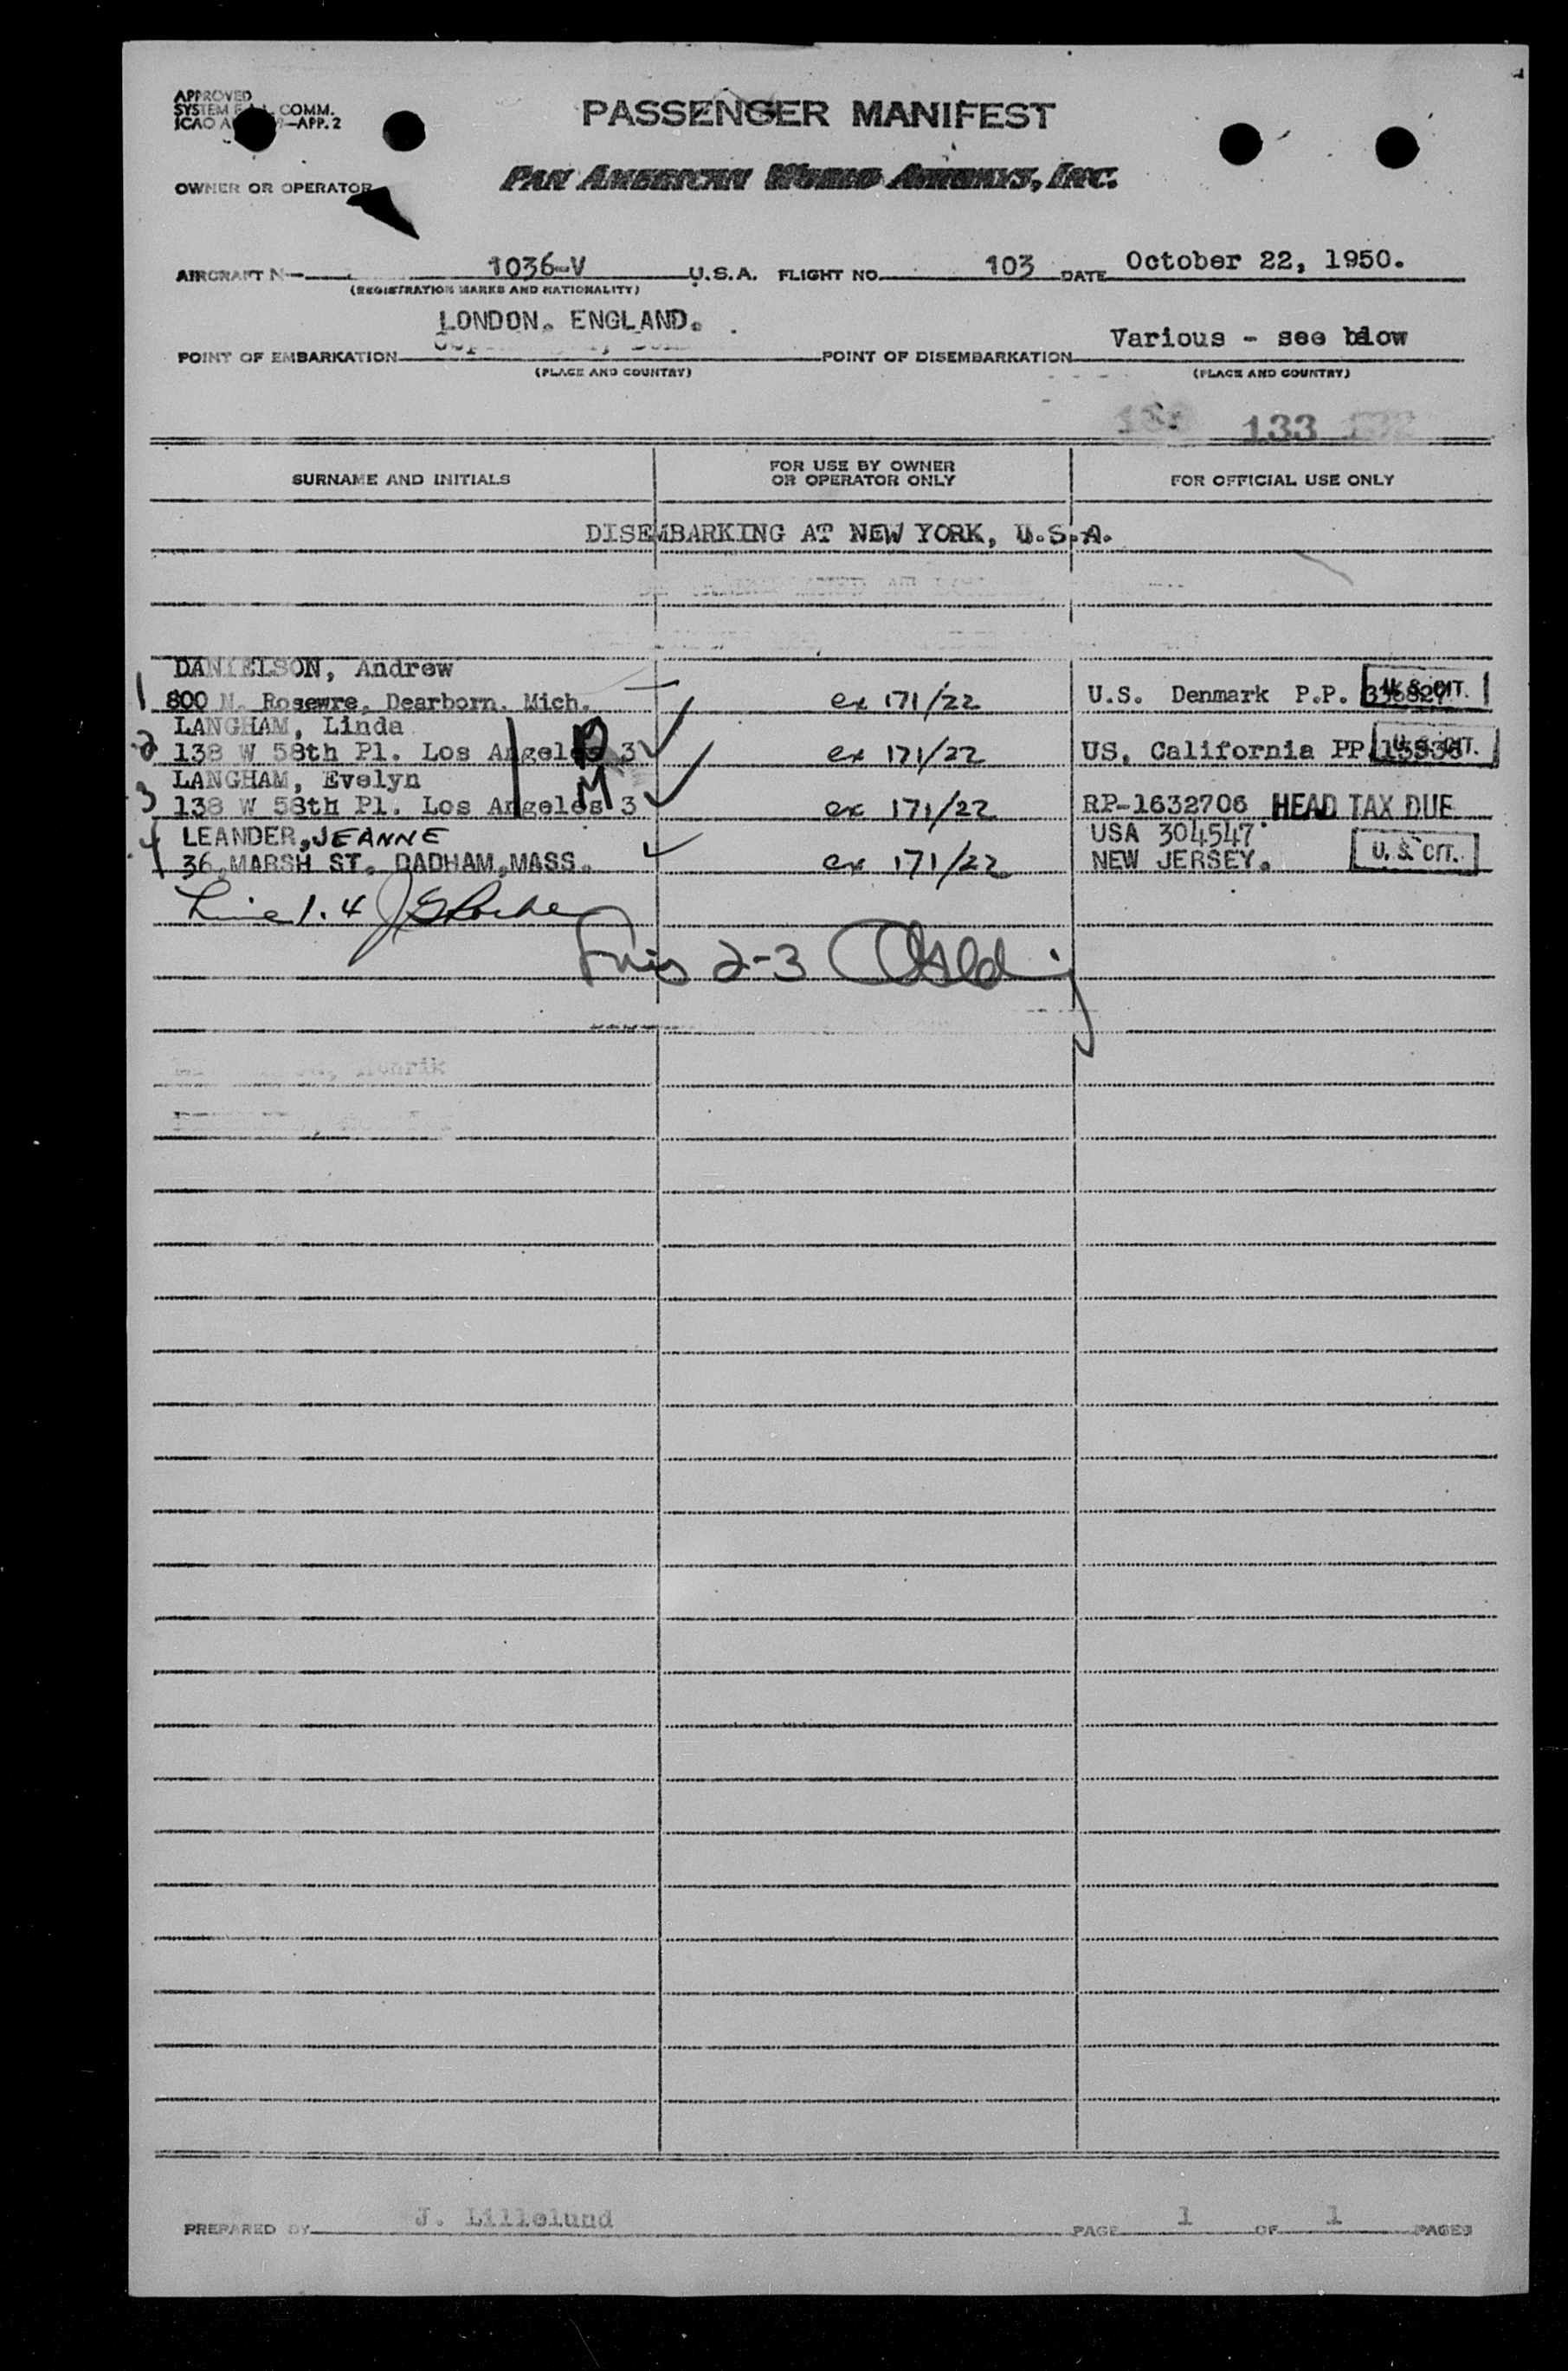 APPROVED
SYSTEM COMM.
ICAO —APP. 2
PASSENGER MANIFEST
OWNER OR OPERATOR
PAN AMERICAN WORLD AIRWAYS, INC.
AIRCRAFT N— 1036-V U.S.A. FLIGHT NO. 103 DATE October 22, 1950.
(REGISTRATION MARKS AND NATIONALITY)
LONDON. ENGLAND.
POINT OF EMBARKATION POINT OF DISEMBARKATION Various - see blow
(PLACE AND COUNTRY) (PLACE AND COUNTRY)
133
SURNAME AND INITIALS FOR USE BY OWNER OR OPERATOR ONLY FOR OFFICIAL USE ONLY
DISEMBARKING AT NEW YORK, U.S.A.
DANIELSON, Andrew
1 800 N. Rosewre, Dearborn. Mich. ex 171/22 U.S. Denmark P.P. U.S. CIT.
LANGHAM, Linda
2 138 W 58th Pl. Los Angeles 3 ex 171/22 US, California PP U.S. CIT.
LANGHAM, Evelyn
3 138 W 58th Pl. Los Angeles 3 ex 171/22 RP-1632706 HEAD TAX DUE
LEANDER, JEANNE USA 304547.
4 36, MARSH ST. DADHAM, MASS. ex 171/22 NEW JERSEY. U.S. CIT.
Line 1.4
Lines 2-3
PREPARED BY J. Lillelund PAGE 1 OF 1 PAGES